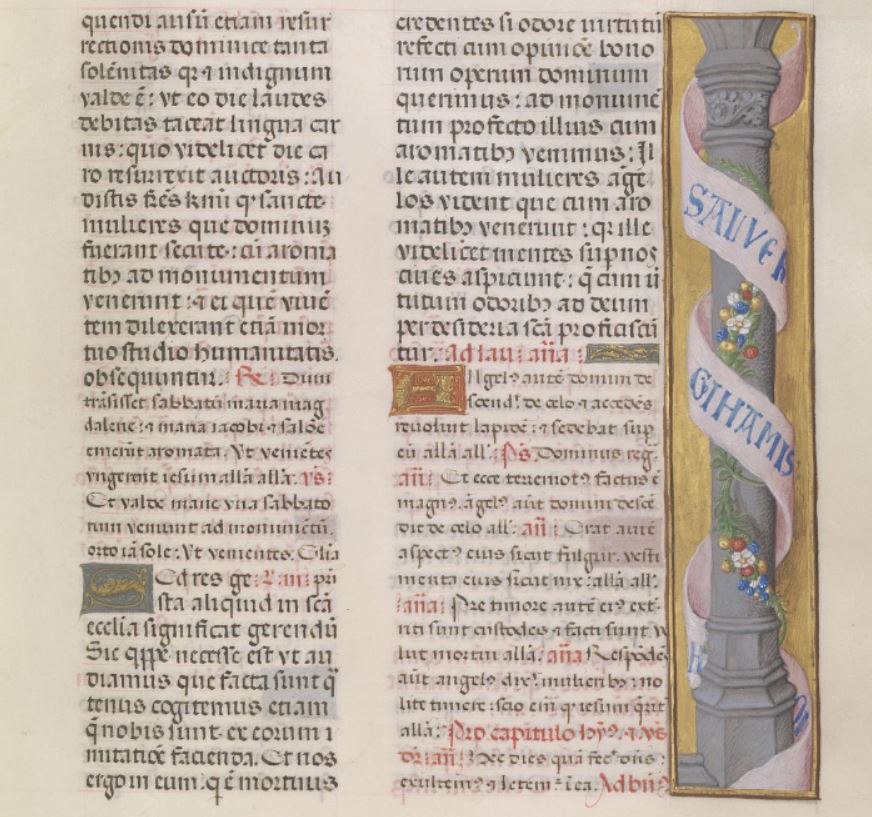 quendi ausū etiam resur
rectionis dominice tanta
solēnitas qr ⁊ indignum
valde ē: vt eo die laudes
debitas taceat lingua car
nis: quo videlicet die ca
ro resurrexit auctoris: Au
distis frēs kmi qꝫ sancte
mulieres que dominuꝫ
fuerant secute: cū aroma
tibꝫ ad monumentum
venerunt: ⁊ ei quē viuē
tem dilexerant etiā mor
tuo studio humanitatis.
obsequuntur. R. Dum
trāsisset sabbatū maria mag
dalene: ⁊ maria iacobi ⁊ salōe
emerūt aromata. Vt veniētes
vngerent iesum alla alla. vs:
Et valde mane vna sabbato
rum veniunt ad monumētū.
orto iā sole: Vt venientes. Glia
Ed res ge: L. iii: pri
sta aliquid in scā
ecclīa significat gerendū
Sic qppe necesse est vt au
diamus que facta sunt q̄
tenus cogitemus etiam
q̄ nobis sunt ex eorum i
mitatiōe facienda. Et nos
ergo in eum: q ē mortuus
credentes si odore uirtutū
refecti cum opinōe bono
rum operum dominum
querimus: ad monumē
tum profecto illius cum
aromatibꝫ venimus: Il
le autem mulieres āge
los vident que cum aro
matibꝫ venerunt: qꝛ ille
videlicet mentes supnos
ciues aspiciunt: q̄ cum ū
tutum odoribꝫ ad deum
per desideria scā proficiscū
tur. Ad lau: aña:
Ngelꝰ autē domini de
scend; de celo ⁊ accedēs
reuoluit lapidē: ⁊ sedebat sup
eū alla all: Ps Dominus reg.
añ: Et ecce terremotꝰ factus ē
magnꝰ. āgelꝰ aut domini descē
dit de celo all. añ: Erat autē
aspectꝰ eius sicut fulgur. vesti
menta eius sicut nix: alla all.
aña: Pre timore autē eiꝰ ext
riti sunt custodes ⁊ facti sunt v
lut mortui alla. aña Respōdēs
aūt angelꝰ dix; mulieribꝫ: no
lite timere: scio eī qꝫ iesum q̄rit
alla: Pro capitulo hyꝰ. ⁊ vs
dr: añ: Hec dies quā fec; dn̄s:
exultemꝰ ⁊ letem: ī ea. Ad bn̄
SALVE R
GIHAMIS